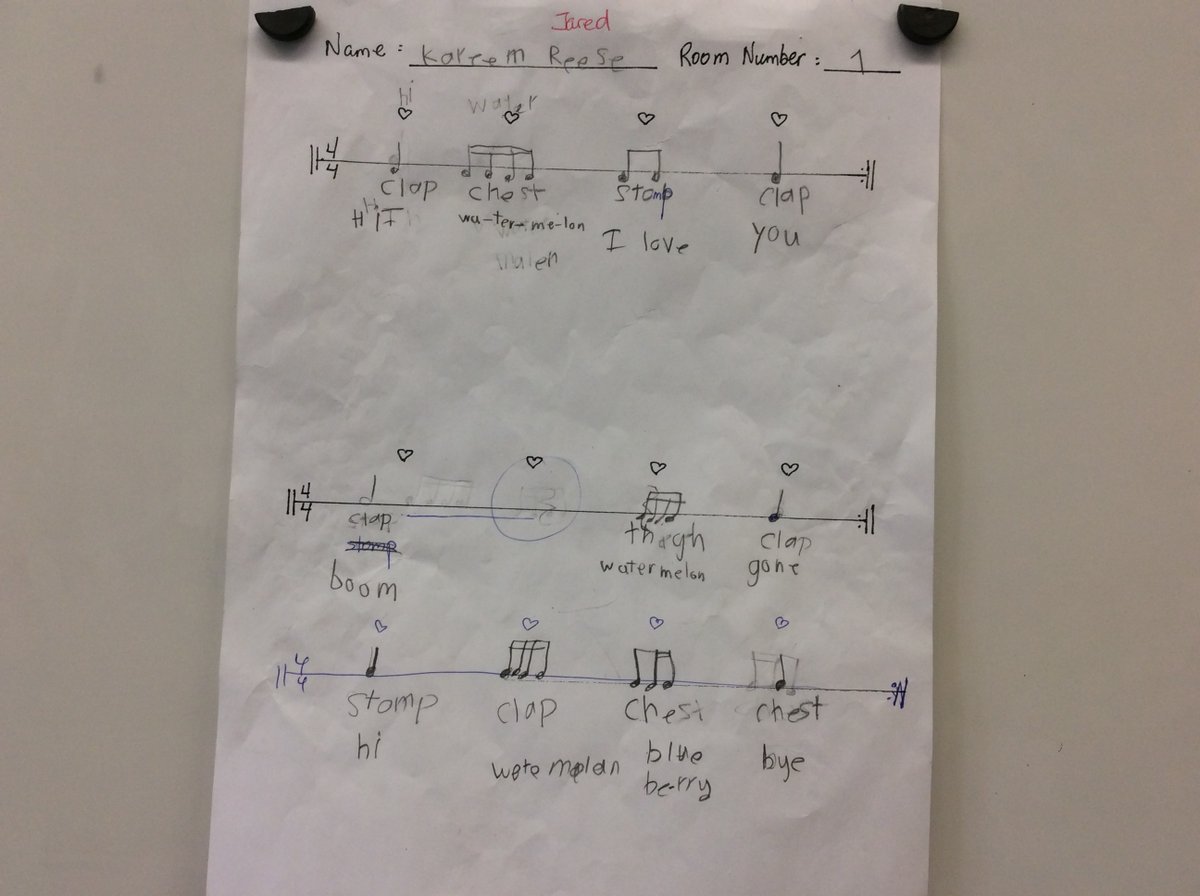 Jared
Name: Kareem Reese Room Number: 1
hi water
4/4
clap chest stomp clap
wa-ter-me-lon I love you
4/4
clap thigh clap
stomp watermelon gone
boom
4/4
stomp clap chest chest
hi wote melon blue bye
berry